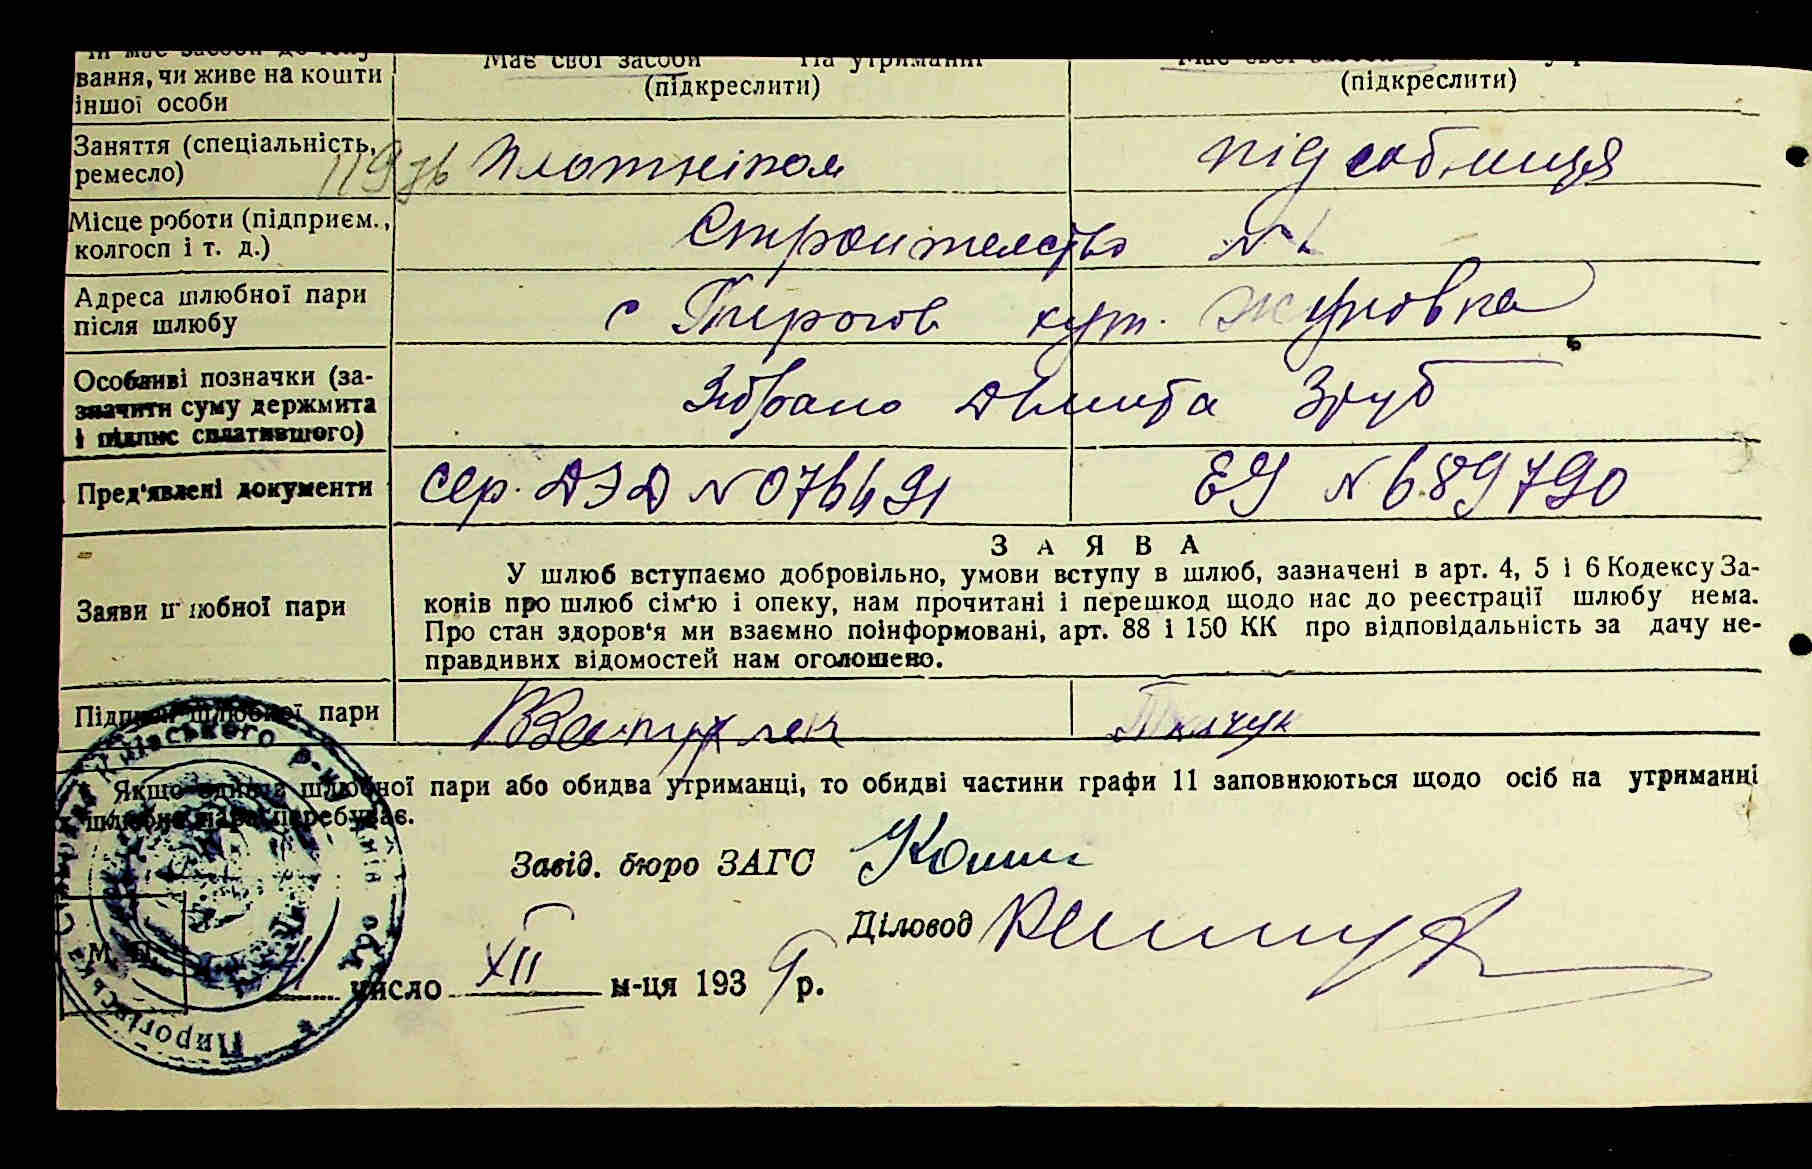 вання, чи живе на кошти
іншої особи
Має свої засоби На утриманні
(підкреслити)
(підкреслити)
Заняття (спеціальність,
ремесло)
Плотніком
підсобниця
Місце роботи (підприєм.,
колгосп і т. д.)
Строителство №1
Адреса шлюбної пари
після шлюбу
с Пирогов хут.
Особливі позначки (за-
значити суму держмита
і підпис сплатившого)
Зібрано Держмита 3руб
Пред'явлені документи
Сер. ДЭД №
ЕУ № 689790
З А Я В А
Заяви шлюбної пари
У шлюб вступаємо добровільно, умови вступу в шлюб, зазначені в арт. 4, 5 і 6 Кодексу За-
конів про шлюб сім'ю і опеку, нам прочитані і перешкод щодо нас до реєстрації шлюбу нема.
Про стан здоров'я ми взаємно поінформовані, арт. 88 і 150 КК про відповідальність за дачу не-
правдивих відомостей нам оголошено.
Підписи шлюбної пари
Ткачук
Якщо один з шлюбної пари або обидва утриманці, то обидві частини графи 11 заповнюються щодо осіб на утриманні
шлюбна пара перебуває.
Завід. бюро ЗАГС
Діловод
М. П.
число XII м-ця 1939 р.